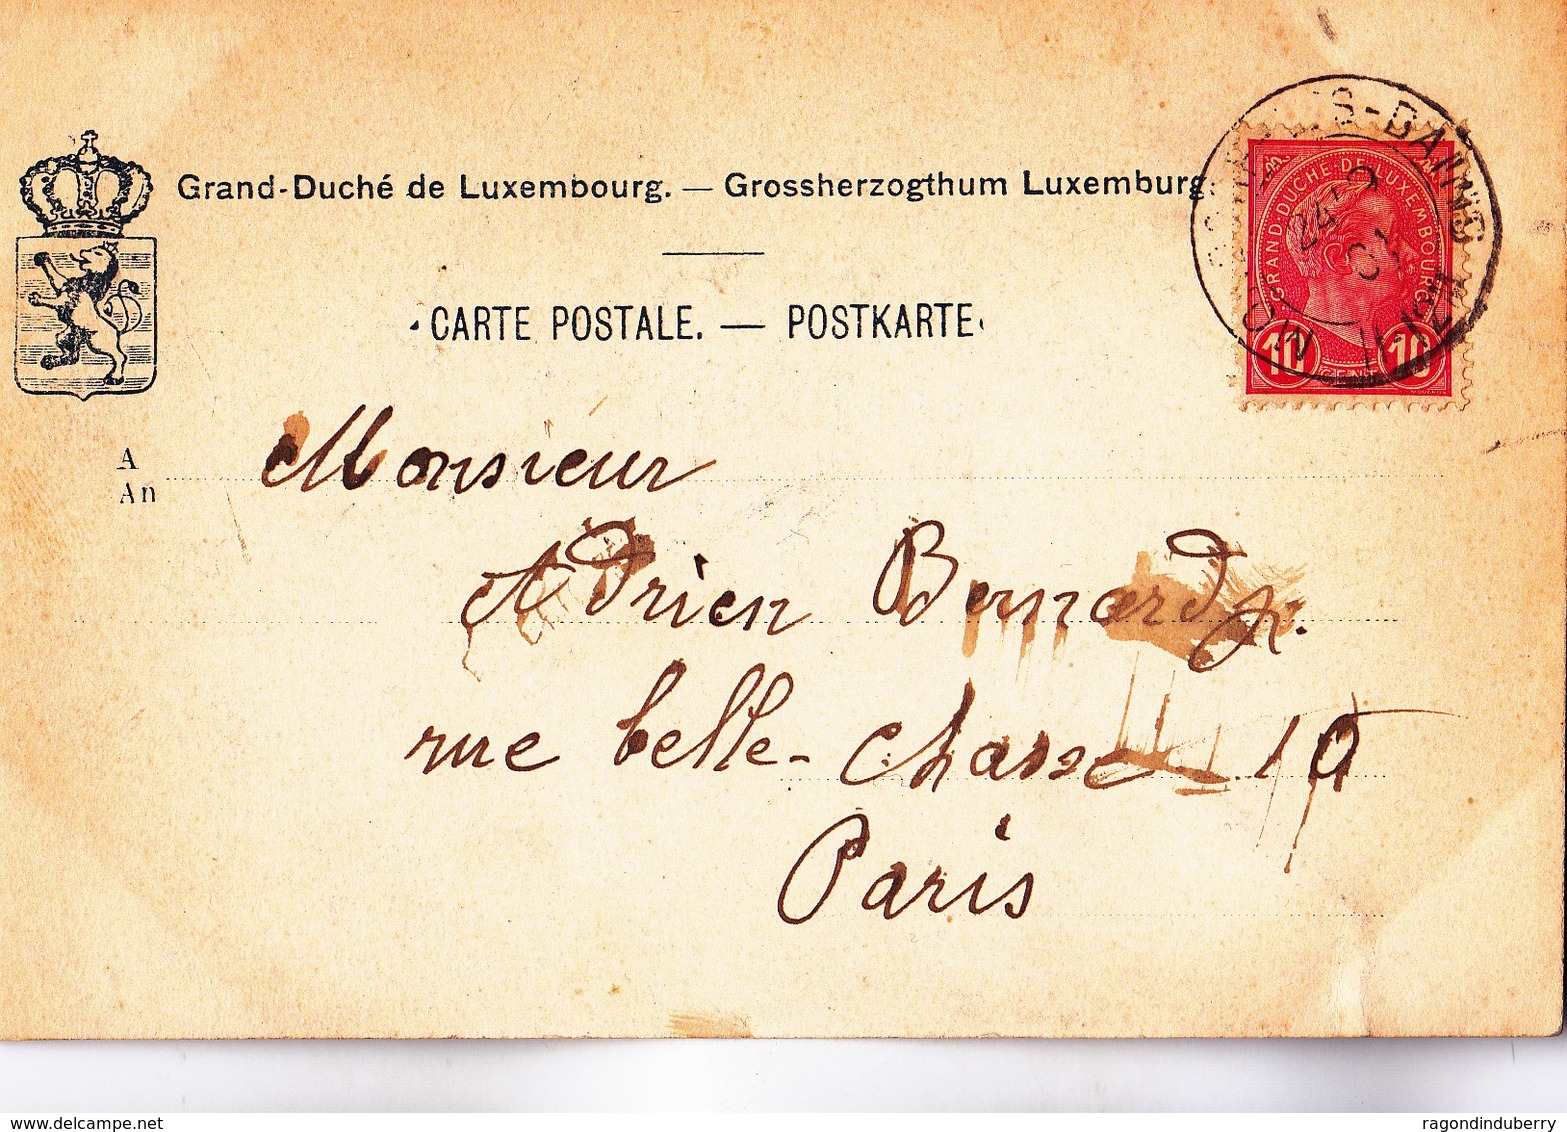 Grand-Duché de Luxembourg. — Grossherzogthum Luxemburg.
CARTE POSTALE. — POSTKARTE.
GRAND-DUCHÉ DE LUXEMBOURG
24-9
10 CENT 10
MONDORF-LES-BAINS
A
An
Monsieur
Adrien Bernard
rue belle-chasse 19
Paris
www.delcampe.net
ragondinduberry